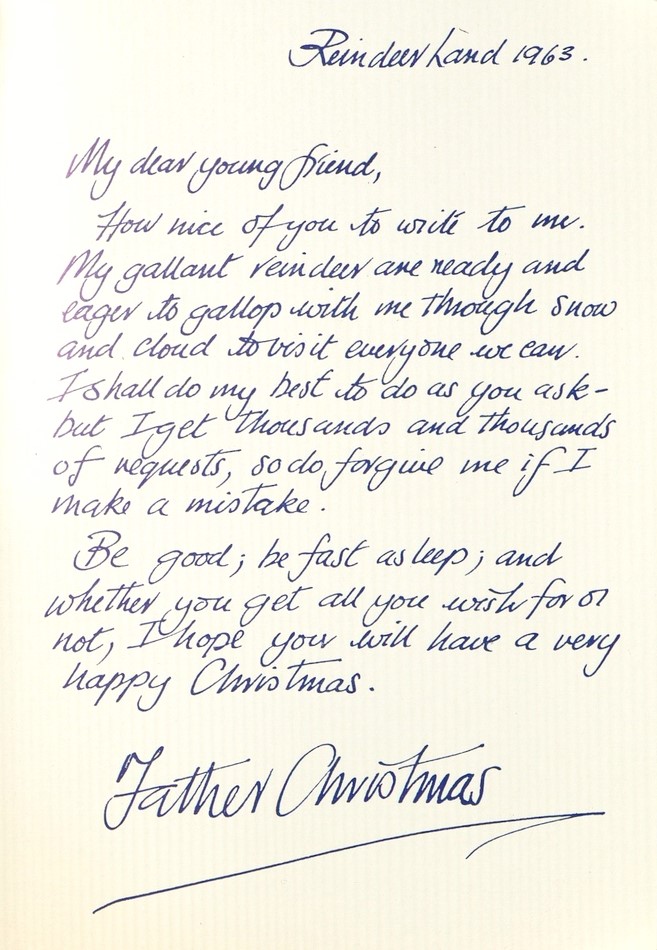 Reindeer Land 1963.
My dear young friend,
How nice of you to write to me.
My gallant reindeer are ready and
eager to gallop with me through snow
and cloud to visit everyone we can.
I shall do my best to do as you ask-
but I get thousands and thousands
of requests, so do forgive me if I
make a mistake.
Be good; be fast asleep; and
whether you get all you wish for or
not, I hope you will have a very
happy Christmas.
Father Christmas